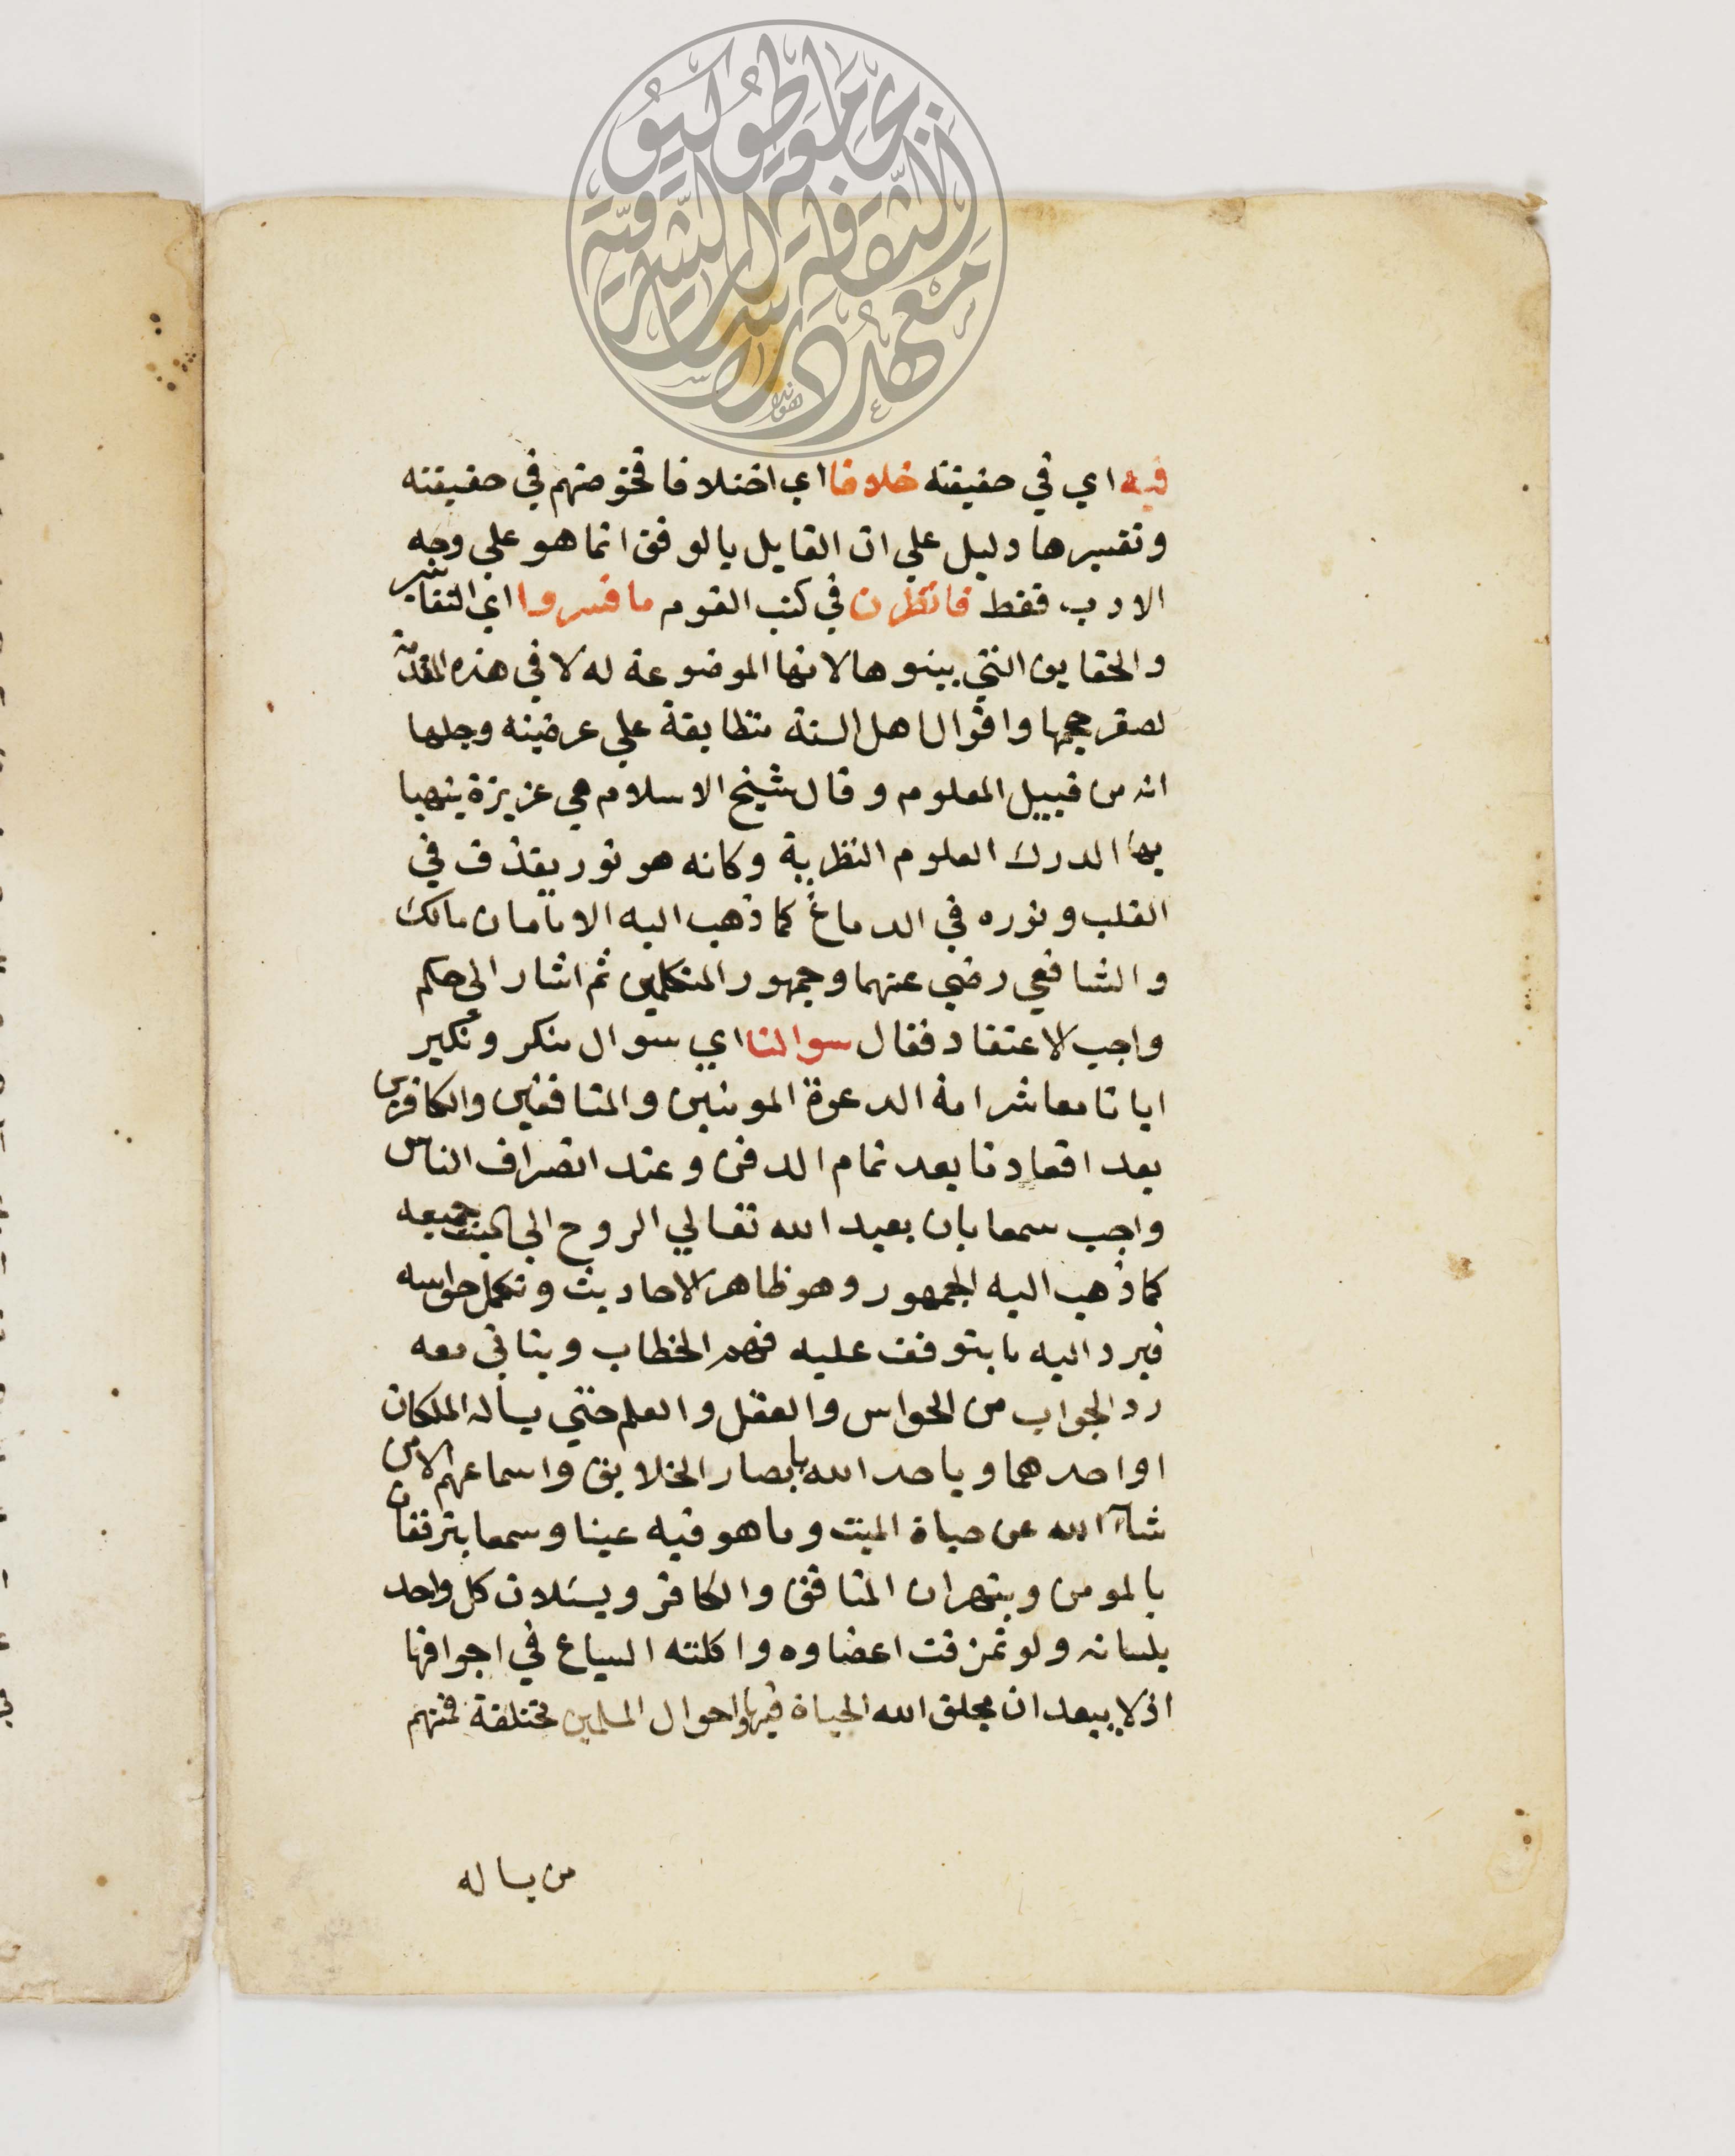 فيه اي في حقيقته خلافا اي اختلافا فخوضهم في حقيقته
وتفسيرها دليل علي ان القايل بالوقف انما هو علي وجه
الادب فقط فانظرن في كتب القوم ما فسروا اي التفاسير
والحقايق التي بينوها لانها الموضوعة له لا في هذه المقدمة
لصغر حجمها واقوال اهل السنة متطابقة علي عرضيته وجلها
انه من قبيل المعلوم وقال شيخ الاسلام هي غريزة يتهيا
بها الدرك العلوم النظرية وكانه هو نور يقذف في
القلب ونوره في الدماغ كما ذهب اليه الامامان مالك
والشافعي رضي عنهما وجمهور المتكلمين ثم اشار الي حكم
واجب الاعتقاد فقال سوالنا اي سوال منكر ونكير
ايانا معاشر امة الدعوة المومنين والمنافقين والكافرين
بعد اقعادنا بعد تمام الدفن وعند انصراف الناس
واجب سمعا بان يعيد الله تعالي الروح الي الميت جميعه
كما ذهب اليه الجمهور وهو ظاهر الاحاديث وتكمل حواسه
فيرد اليه ما يتوقف عليه فهم الخطاب ويتاتي معه
رد الجواب من الحواس والعقل والعلم حتي يساله الملكان
او احدهما وياخد الله بابصار الخلايق واسماعهم الا من
شآء الله عن حياة الميت وما هو فيه عينا وسمعا يترفقان
بالمومن وينهران المنافق والكافر ويسئلان كل واحد
بلسانه ولو تمزقت اعضاوه واكلته السباع في اجوافها
اذ لا يبعد ان يخلق الله الحياة فيها واحوال المسلمين مختلفة فمنهم
من يساله